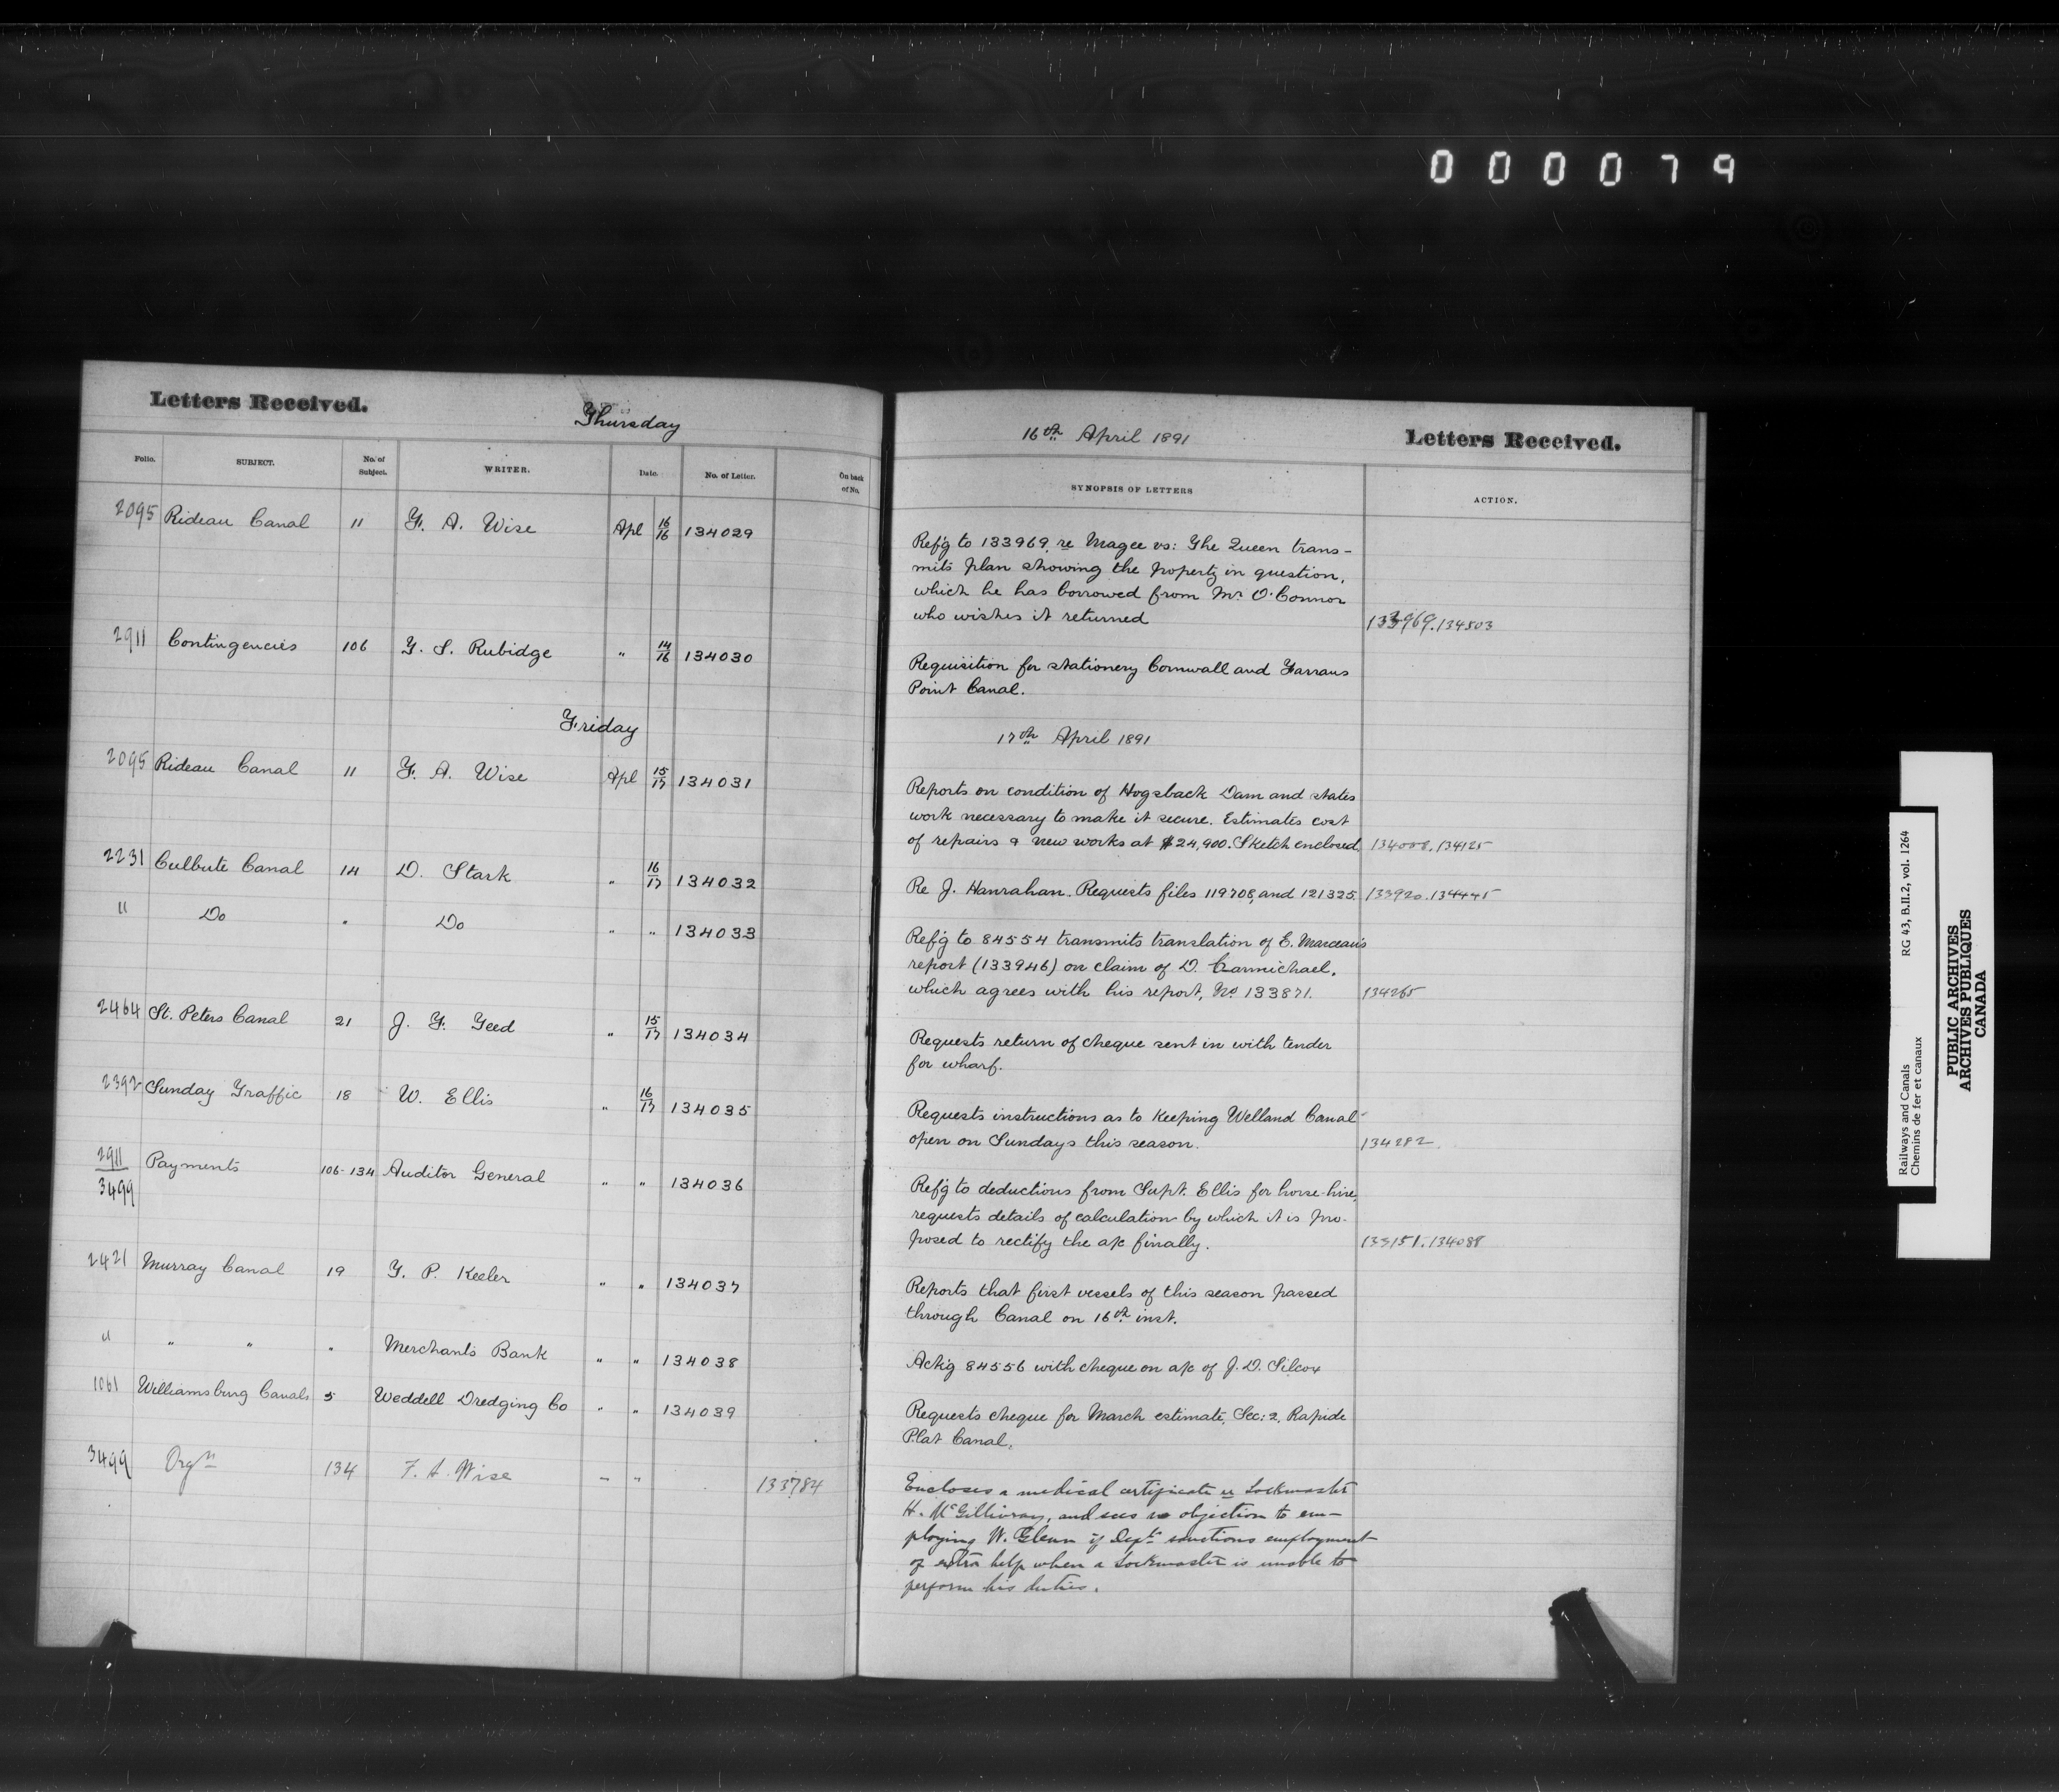 0 0 0 0 7 9
Letters Received.
Thursday
16th April 1891
Letters Received.
Folio. SUBJECT. No. of Subject. WRITER. Date. No. of Letter. On back of No. SYNOPSIS OF LETTERS ACTION.
2095 Rideau Canal 11 F. A. Wise Apl 16/16 134029
Ref'g to 133969, re Magee vs: The Queen trans-
mits plan showing the property in question,
which he has borrowed from Mr. O'Connor
who wishes it returned 133969.134503
2911 Contingencies 106 T. S. Rubidge " 14/16 134030
Requisition for stationery Cornwall and Farrans
Point Canal.
Friday
17th April 1891
2095 Rideau Canal 11 F. A. Wise Apl 15/17 134031
Reports on condition of Hogsback Dam and states
work necessary to make it secure. Estimates cost
of repairs & new works at $24,900. Sketch enclosed 134008.134125
2231 Culbute Canal 14 D. Stark " 16/17 134032
Re J. Hanrahan. Requests files 119708, and 121325. 133920.134445
" Do " Do " " 134033
Ref'g to 84554 transmits translation of E. Marceau's
report (133946) on claim of D. Carmichael,
which agrees with his report, No 133871. 134265
2464 St. Peters Canal 21 J. F. Teed " 15/17 134034
Requests return of cheque sent in with tender
for wharf.
2392 Sunday Traffic 18 W. Ellis " 16/17 134035
Requests instructions as to keeping Welland Canal
open on Sundays this season. 134282
2911/3499 Payments 106-134 Auditor General " " 134036
Ref'g to deductions from Supt. Ellis for horse-hire,
requests details of calculation by which it is pro-
posed to rectify the a/c finally. 133151.134088
2421 Murray Canal 19 T. P. Keeler " " 134037
Reports that first vessels of this season passed
through Canal on 16th inst.
" " " " Merchants Bank " " 134038
Ack'g 84556 with cheque on a/c of J. D. Silcox
1061 Williamsburg Canals 5 Weddell Dredging Co " " 134039
Requests cheque for March estimate, Sec: 2, Rapide
Plat Canal.
3499 Orgn 134 F. A. Wise " " 133784
Encloses a medical certificate re Lockmaster
H. McGillivray, and sees no objection to em-
ploying W. Glenn if Dept. sanctions employment
of extra help when a Lockmaster is unable to
perform his duties.
Railways and Canals RG 43, B.II.2, vol. 1264
Chemins de fer et canaux
PUBLIC ARCHIVES
ARCHIVES PUBLIQUES
CANADA